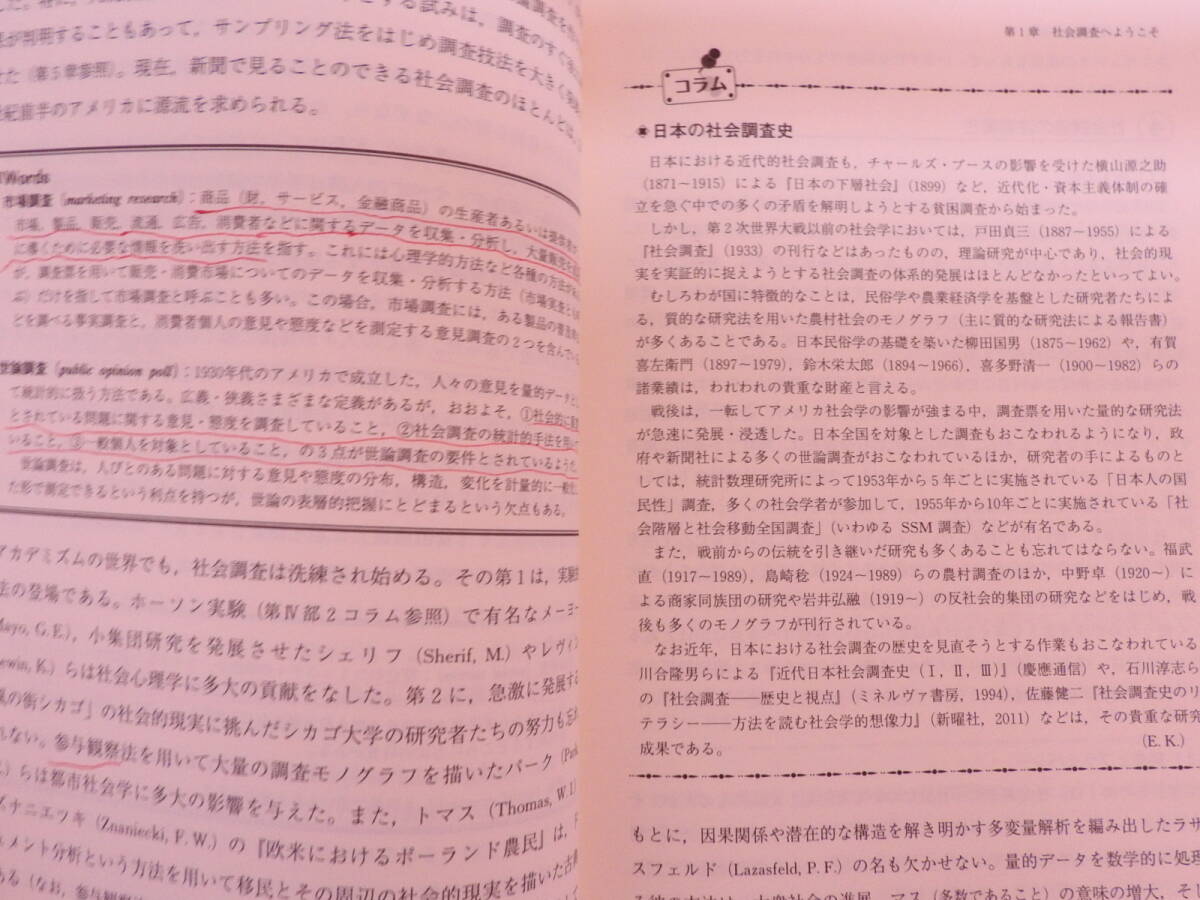 論調査を
とする試みは，調査のすぐ
が判明することもあって，サンプリング法をはじめ調査技法を大きく
せた（第5章参照）。現在，新聞で見ることのできる社会調査のほとんど
世紀前半のアメリカに源流を求められる。
Words
市場調査（marketing research）：商品（財，サービス，金融商品）の生産者あるいは提供者
市場，製品，販売，流通，広告，消費者などに関するデータを収集・分析し，大量販売を
に導くために必要な情報を洗い出す方法を指す。これには心理学的方法など各種の方法が
が，調査票を用いて販売・消費市場についてのデータを収集・分析する方法（市場実査と
）だけを指して市場調査と呼ぶことも多い。この場合，市場調査には，ある製品の普及
どを調べる事実調査と，消費者個人の意見や態度などを測定する意見調査の2つを含んでい
世論調査（public opinion poll）：1930年代のアメリカで成立した，人々の意見を量的データと
て統計的に扱う方法である。広義・狭義さまざまな定義があるが，おおよそ，①社会的に
とされている問題に関する意見・態度を調査していること，②社会調査の統計的手法を用い
いること，③一般個人を対象としていること，の3点が世論調査の要件とされているよう
世論調査は，人びとのある問題に対する意見や態度の分布，構造，変化を計量的に一般
た形で測定できるという利点を持つが，世論の表層的把握にとどまるという欠点もある。
アカデミズムの世界でも，社会調査は洗練され始める。その第1は，実験
法の登場である。ホーソン実験（第Ⅳ部2コラム参照）で有名なメーヨー
Mayo, G.E.），小集団研究を発展させたシェリフ（Sherif, M.）やレヴィン
ewin, K.）らは社会心理学に多大の貢献をなした。第2に，急激に発展する
風の街シカゴ」の社会的現実に挑んだシカゴ大学の研究者たちの努力も忘
れない。参与観察法を用いて大量の調査モノグラフを描いたパーク（Park
）らは都市社会学に多大の影響を与えた。また，トマス（Thomas, W.I.
ズナニエツキ（Znaniecki, F.W.）の『欧米におけるポーランド農民』は，
ュメント分析という方法を用いて移民とその周辺の社会的現実を描いた古
ある（なお，参与観察
第1章　社会調査へようこそ
コラム
日本の社会調査史
日本における近代的社会調査も，チャールズ・ブースの影響を受けた横山源之助
（1871～1915）による『日本の下層社会』（1899）など，近代化・資本主義体制の確
立を急ぐ中での多くの矛盾を解明しようとする貧困調査から始まった。
しかし，第2次世界大戦以前の社会学においては，戸田貞三（1887～1955）による
『社会調査』（1933）の刊行などはあったものの，理論研究が中心であり，社会的現
実を実証的に捉えようとする社会調査の体系的発展はほとんどなかったといってよい。
むしろわが国に特徴的なことは，民俗学や農業経済学を基盤とした研究者たちによ
る，質的な研究法を用いた農村社会のモノグラフ（主に質的な研究法による報告書）
が多くあることである。日本民俗学の基礎を築いた柳田国男（1875～1962）や，有賀
喜左衛門（1897～1979），鈴木栄太郎（1894～1966），喜多野清一（1900～1982）らの
諸業績は，われわれの貴重な財産と言える。
戦後は，一転してアメリカ社会学の影響が強まる中，調査票を用いた量的な研究法
が急速に発展・浸透した。日本全国を対象とした調査もおこなわれるようになり，政
府や新聞社による多くの世論調査がおこなわれているほか，研究者の手によるものと
しては，統計数理研究所によって1953年から5年ごとに実施されている「日本人の国
民性」調査，多くの社会学者が参加して，1955年から10年ごとに実施されている「社
会階層と社会移動全国調査」（いわゆる SSM 調査）などが有名である。
また，戦前からの伝統を引き継いだ研究も多くあることも忘れてはならない。福武
直（1917～1989），島崎稔（1924～1989）らの農村調査のほか，中野卓（1920～）に
よる商家同族団の研究や岩井弘融（1919～）の反社会的集団の研究などをはじめ，戦
後も多くのモノグラフが刊行されている。
なお近年，日本における社会調査の歴史を見直そうとする作業もおこなわれている。
川合隆男らによる『近代日本社会調査史（Ⅰ，Ⅱ，Ⅲ）』（慶應通信）や，石川淳志ら
の『社会調査――歴史と視点』（ミネルヴァ書房，1994），佐藤健二『社会調査史のリ
テラシー――方法を読む社会学的想像力』（新曜社，2011）などは，その貴重な研究
成果である。　（E.K.）
もとに，因果関係や潜在的な構造を解き明かす多変量解析を編み出したラザ
スフェルド（Lazasfeld, P.F.）の名も欠かせない。量的データを数学的に処理
大衆社会の進展，マス（多数であること）の意味の増大，そし